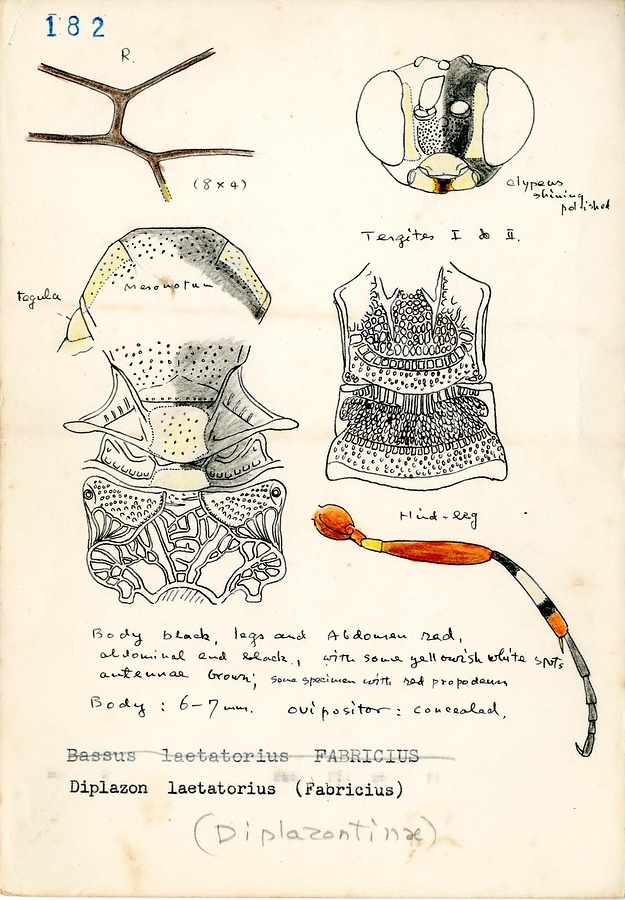 182
R.
(8x4)
clypeus
shining
polished
Tergites I & II.
Tegula
mesonotum
Hind-leg
Body black, legs and Abdomen red,
abdominal end black, with some yellowish white spots
antennae brown; some specimen with red propodeum
Body : 6-7 mm. ovipositor : concealed.
Bassus laetatorius FABRICIUS
Diplazon laetatorius (Fabricius)
(Diplazontinae)